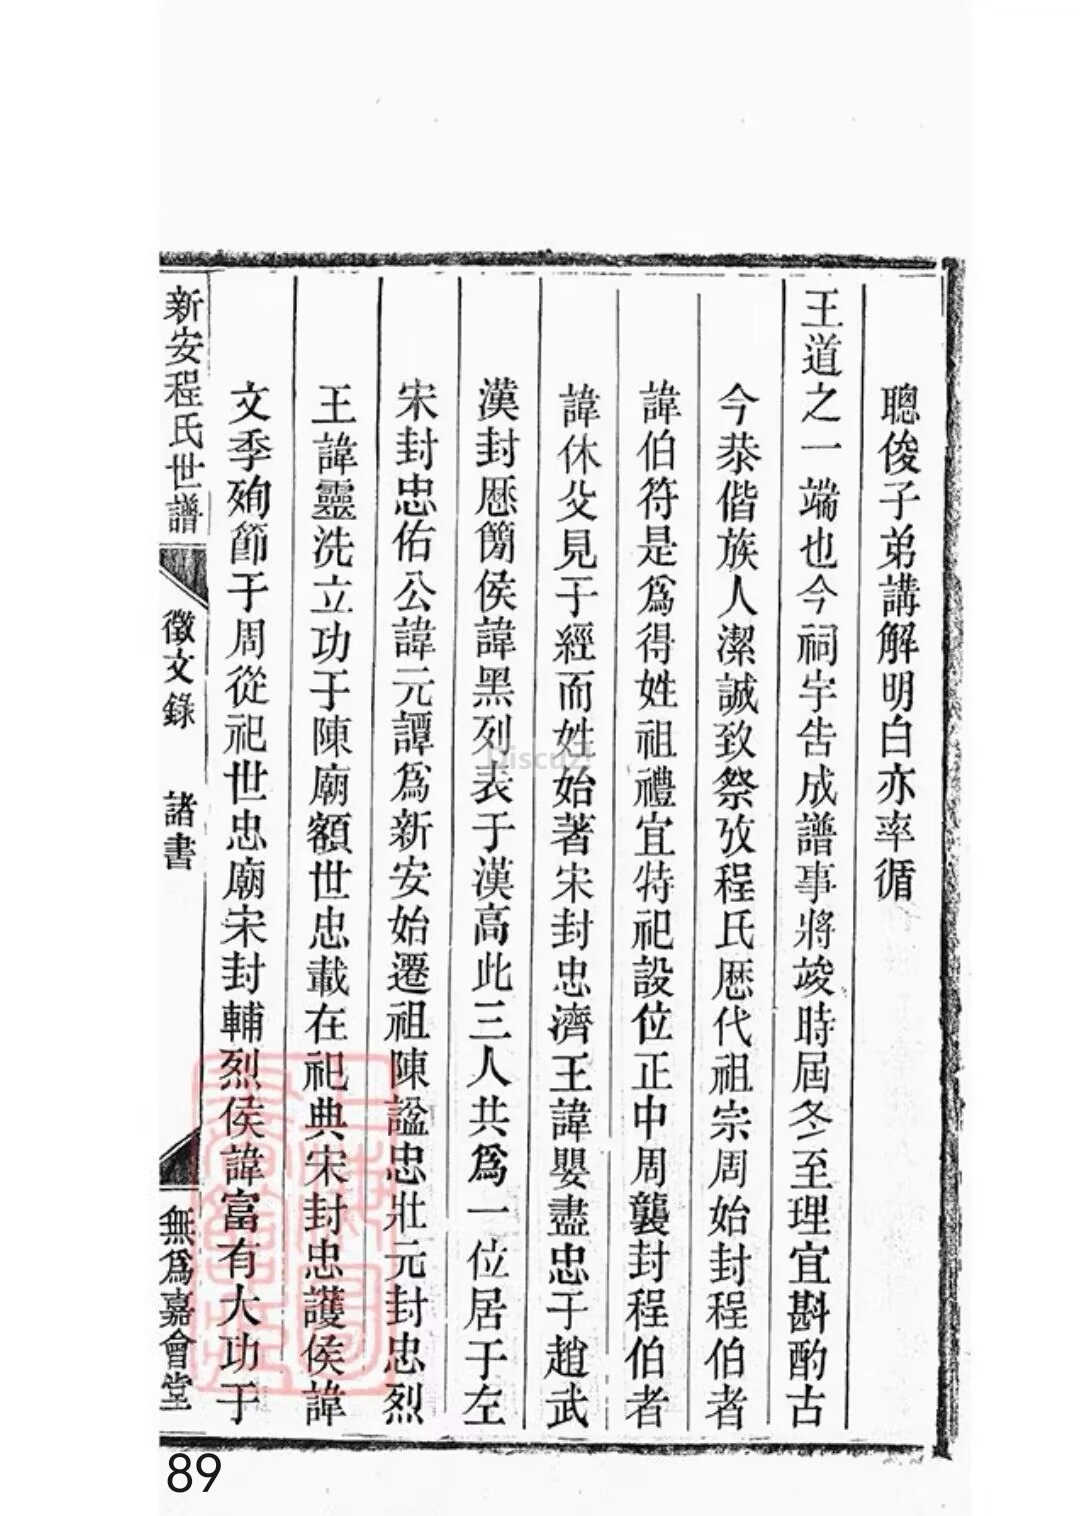 聰俊子弟講解明白亦率循
王道之一端也今祠宇告成譜事將竣時屆冬至理宜斟酌古
今恭偕族人潔誠致祭攷程氏歴代祖宗周始封程伯者
諱伯符是爲得姓祖禮宜特祀設位正中周襲封程伯者
諱休父見于經而姓始著宋封忠濟王諱嬰盡忠于趙武
漢封歴簡侯諱黑列表于漢高此三人共爲一位居于左
宋封忠佑公諱元譚爲新安始遷祖陳諡忠壯元封忠烈
王諱靈洗立功于陳廟額世忠載在祀典宋封忠護侯諱
文季殉節于周從祀世忠廟宋封輔烈侯諱富有大功于
新安程氏世譜 徵文錄 諸書 無爲嘉會堂
Discuz!
89